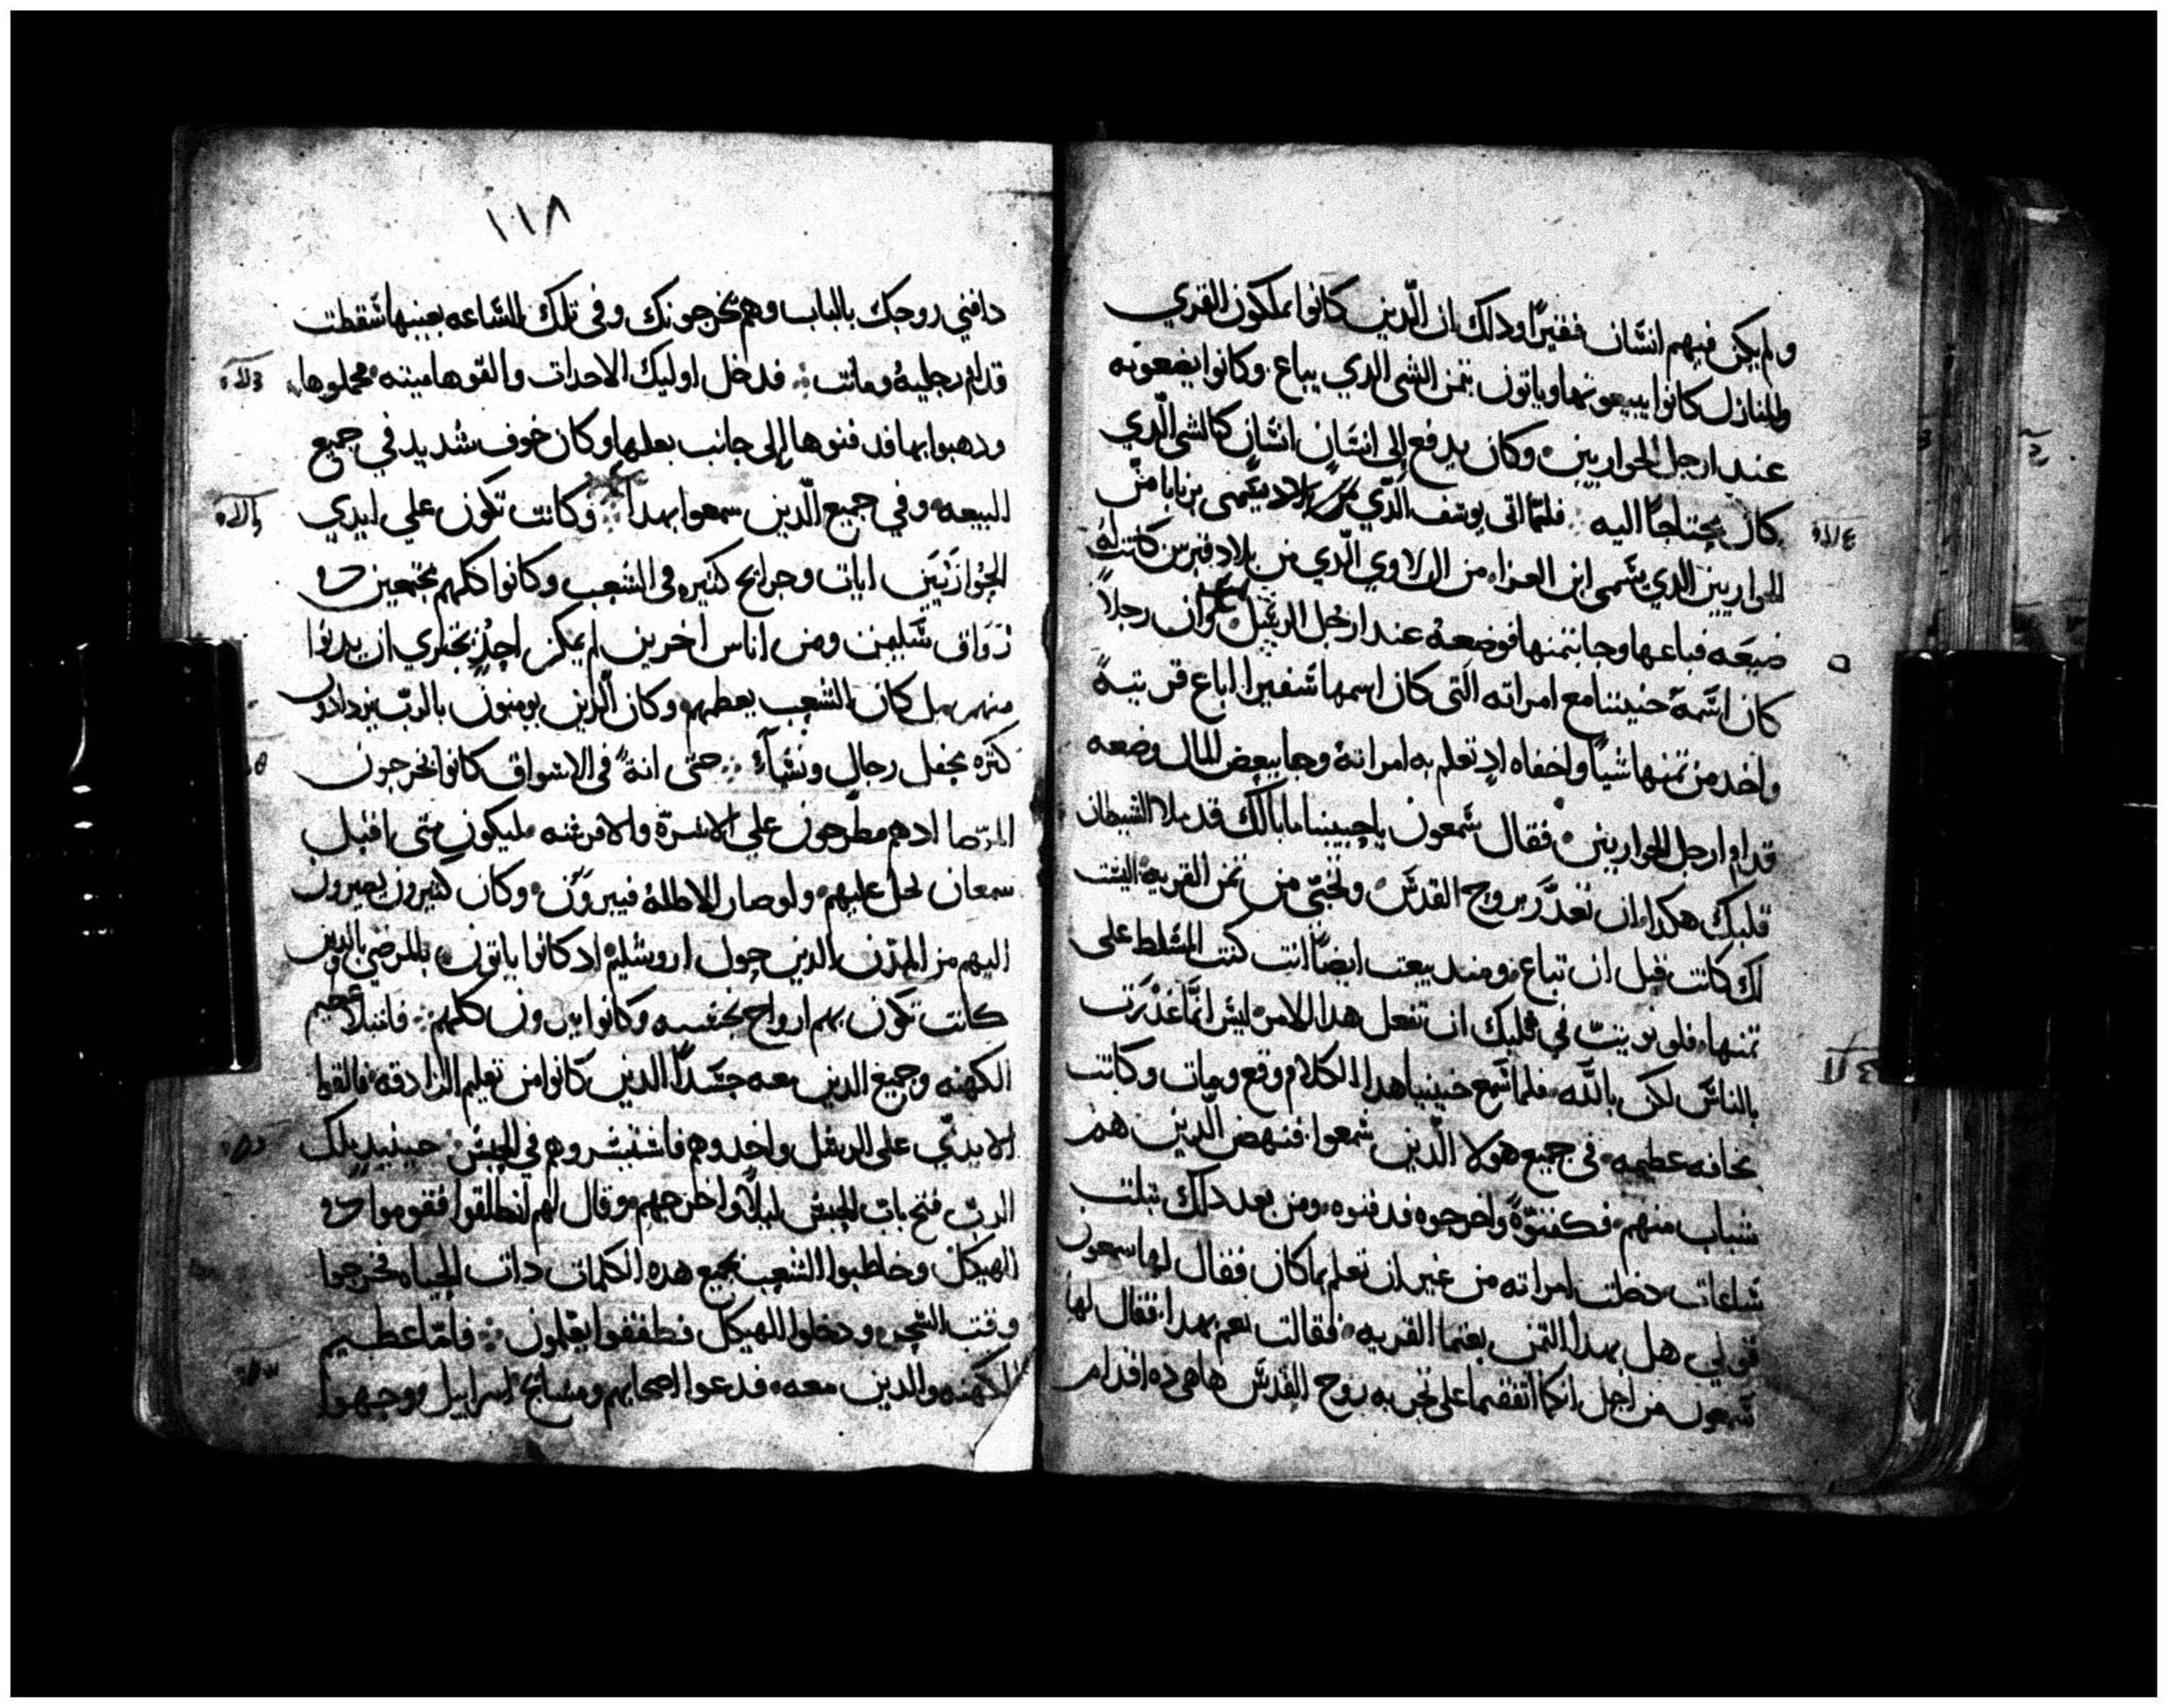 ولم يكن فيهم انسان فقيرًا ودلك ان الدين كانوا يملكون القري
والمنازل كانوا يبيعونها وياتون بتمن الشي الدي يباع. وكانوا يضعونه
عند ارجل الحواريين وكان يدفع إلى انسان انسان كالشي الدي
كان يحتاجًا اليه فلمّا اتى يوسف الدّي من يسمى برنابا من
الحواريين الدي يسمى ابن العزاء من اللاوي الدّي من بلاد قبرس كانت له
ضيعه فباعها وجا بتمنها فوضعه عند ارجل الرسل وان رجلاً
كان اسمه حنينا مع امراته التى كان اسمها شفيرا اباع قريتهً
واخد من تمنها شياً واخفاه اد تعلم به امراته وجا ببعض المال وضعه
قدام ارجل الحواريين فقال شمعون ياحنينا ما بالك قد ملا الشيطان
قلبك هكدا ان تغدر بروح القدس وتخبّى من تمن القريه اليست
لك كانت قبل ان تباع ومند بيعت ايضاً انت كنت المسلط على
تمنها فلم نويت في قلبك ان تفعل هدا الامر ليس انمّا غدرت
بالناس لكن بالله فلما سمع حنينيا هدا الكلام وقع ومات وكانت
مخافه عظيمه في جميع هولا الدّين سمعوا فنهض الدين هم
شباب منهم فكفنوّهً واخرجوه فدفنوه ومن بعد دلك بتلت
ساعات دخلت امراته من غير ان تعلم بما كان فقال لها سمعون
قولي هل بهدا التمن بعتما القريه فقالت نعم بهدا فقال لها
شمعون من اجل انكما اتفقتما على تجربه روح القدس ها هي ده اقدام
١١٨
دافني زوجك بالباب وهم يخرجونك وفى تلك الساعه بعينها سقطت
قدام رجليه وماتت فدخل اوليك الاحدات والقوها ميته فحملوها
ودهبوا بها فدفنوها إلى جانب بعلها وكان خوف شديد في جميع
البيعه وفي جميع الدّين سمعوا بهدا وكانت تكون علي ايدي
الحواريين ايات وجرايح كتيره فى الشعب وكانوا كلهم مجتمعين في
رواق سليمن ومن اناس اخرين لم يكن احد يجتري ان يدنوا
منهم بل كان الشعب يعظمهم وكان الدين يومنون بالربّ يزدادون
كثره محفل رجال ونسآء حتى انهً في الاسواق كانوا يخرجون
المرضا ادهم مطرحون علي الاسرّة والافرشه ليكون متى اقبل
سمعان تحل عليهم ولو صار الاظله فيبرون وكان كتيرون يصيرون
اليهم من المدن الدين حول اروشليم ادكانوا ياتون بالمرضي بالدين
كانت تكون بهم ارواح نجسه وكانوا يبرون كلهم فامتلا عظيم
الكهنه وجميع الدين معه حسداً الدين كانوا من تعليم الزنادقه فالقوا
الايديّ على الرسل واخدوهم فاستيسروهم في الحبس حينيد ملك
الربّ فتح باب الحبس ليلاً واخرجهم وقال لهم انطلقوا فقوموا في
الهيكل وخاطبوا الشعب بجميع هده الكلمات دات الحياه فخرجوا
وقت السحر ودخلوا الهيكل فطفقوا يعلمون فامّا عظيم
الكهنه والدين معه فدعوا اصحابهم ومشايخ اسراييل ووجهوا